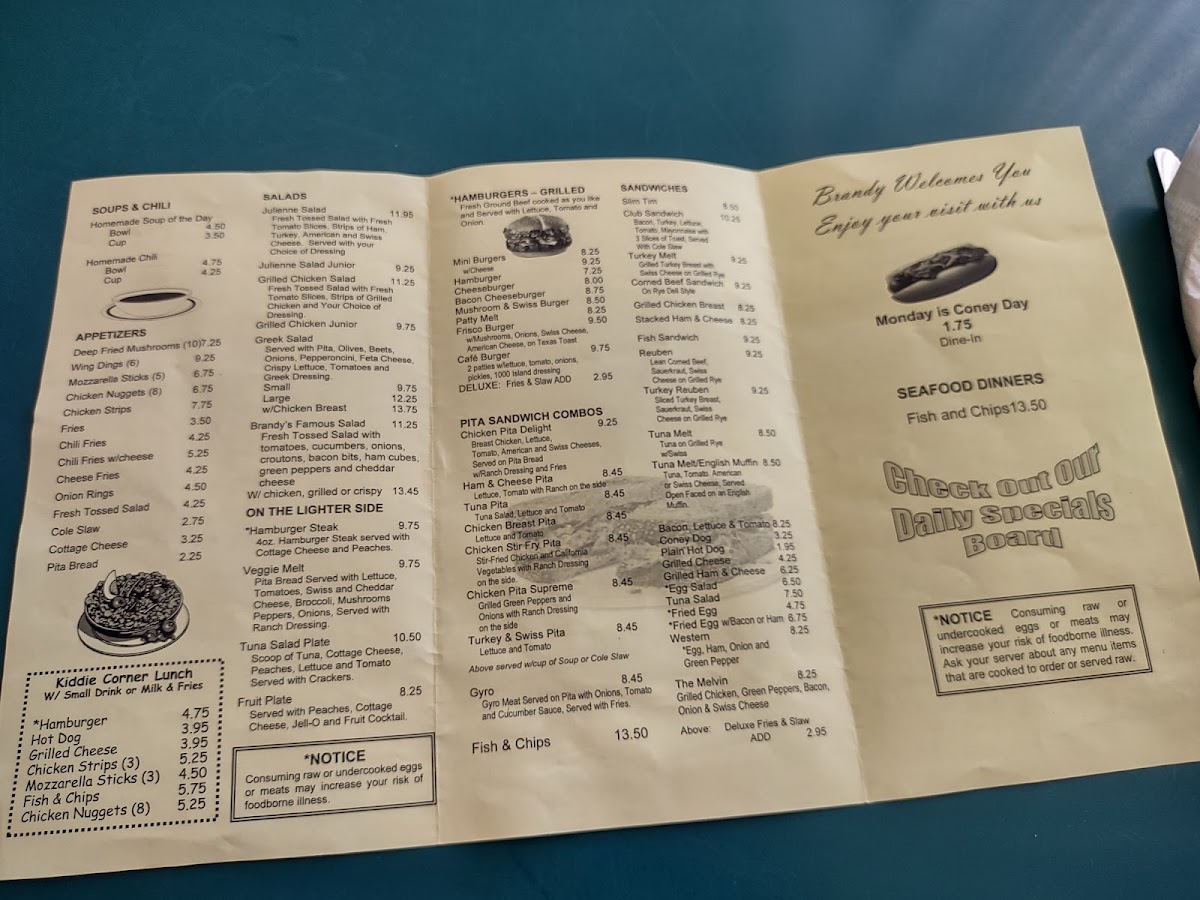 SOUPS & CHILI
Homemade Soup of the Day
Bowl 4.50
Cup 3.50
Homemade Chili
Bowl 4.75
Cup 4.25
APPETIZERS
Deep Fried Mushrooms (10) 7.25
Wing Dings (6) 9.25
Mozzarella Sticks (5) 6.75
Chicken Nuggets (8) 6.75
Chicken Strips 7.75
Fries 3.50
Chili Fries 4.25
Chili Fries w/cheese 5.25
Cheese Fries 4.25
Onion Rings 4.50
Fresh Tossed Salad 4.25
Cole Slaw 2.75
Cottage Cheese 3.25
Pita Bread 2.25
Kiddie Corner Lunch
W/ Small Drink or Milk & Fries
*Hamburger 4.75
Hot Dog 3.95
Grilled Cheese 3.95
Chicken Strips (3) 5.25
Mozzarella Sticks (3) 4.50
Fish & Chips 5.75
Chicken Nuggets (8) 5.25
SALADS
Julienne Salad 11.95
Fresh Tossed Salad with Fresh
Tomato Slices, Strips of Ham,
Turkey, American and Swiss
Cheese. Served with your
Choice of Dressing
Julienne Salad Junior 9.25
Grilled Chicken Salad 11.25
Fresh Tossed Salad with Fresh
Tomato Slices, Strips of Grilled
Chicken and Your Choice of
Dressing.
Grilled Chicken Junior 9.75
Greek Salad
Served with Pita, Olives, Beets,
Onions, Pepperoncini, Feta Cheese,
Crispy Lettuce, Tomatoes and
Greek Dressing.
Small 9.75
Large 12.25
w/Chicken Breast 13.75
Brandy's Famous Salad 11.25
Fresh Tossed Salad with
tomatoes, cucumbers, onions,
croutons, bacon bits, ham cubes,
green peppers and cheddar
cheese
W/ chicken, grilled or crispy 13.45
ON THE LIGHTER SIDE
*Hamburger Steak 9.75
4oz. Hamburger Steak served with
Cottage Cheese and Peaches.
Veggie Melt 9.75
Pita Bread Served with Lettuce,
Tomatoes, Swiss and Cheddar
Cheese, Broccoli, Mushrooms
Peppers, Onions, Served with
Ranch Dressing.
Tuna Salad Plate 10.50
Scoop of Tuna, Cottage Cheese,
Peaches, Lettuce and Tomato
Served with Crackers.
Fruit Plate 8.25
Served with Peaches, Cottage
Cheese, Jell-O and Fruit Cocktail.
*NOTICE
Consuming raw or undercooked eggs
or meats may increase your risk of
foodborne illness.
*HAMBURGERS – GRILLED
Fresh Ground Beef cooked as you like
and Served with Lettuce, Tomato and
Onion.
Mini Burgers 8.25
w/Cheese 9.25
Hamburger 7.25
Cheeseburger 8.00
Bacon Cheeseburger 8.75
Mushroom & Swiss Burger 8.50
Patty Melt 8.25
Frisco Burger 9.50
w/Mushrooms, Onions, Swiss Cheese,
American Cheese, on Texas Toast
Café Burger 9.75
2 patties w/lettuce, tomato, onions,
pickles, 1000 Island dressing
DELUXE: Fries & Slaw ADD 2.95
PITA SANDWICH COMBOS
Chicken Pita Delight 9.25
Breast Chicken, Lettuce,
Tomato, American and Swiss Cheeses,
Served on Pita Bread
w/Ranch Dressing and Fries
Ham & Cheese Pita 8.45
Lettuce, Tomato with Ranch on the side
Tuna Pita 8.45
Tuna Salad, Lettuce and Tomato
Chicken Breast Pita 8.45
Lettuce and Tomato
Chicken Stir Fry Pita 8.45
Stir-Fried Chicken and California
Vegetables with Ranch Dressing
on the side.
Chicken Pita Supreme 8.45
Grilled Green Peppers and
Onions with Ranch Dressing
on the side
Turkey & Swiss Pita 8.45
Lettuce and Tomato
Above served w/cup of Soup or Cole Slaw
Gyro 8.45
Gyro Meat Served on Pita with Onions, Tomato
and Cucumber Sauce, Served with Fries.
Fish & Chips 13.50
SANDWICHES
Slim Tim 8.50
Club Sandwich 10.25
Bacon, Turkey, Lettuce,
Tomato, Mayonnaise with
3 Slices of Toast, Served
With Cole Slaw
Turkey Melt 9.25
Grilled Turkey Breast with
Swiss Cheese on Grilled Rye
Corned Beef Sandwich 9.25
On Rye Deli Style
Grilled Chicken Breast 8.25
Stacked Ham & Cheese 8.25
Fish Sandwich 9.25
Reuben 9.25
Lean Corned Beef,
Sauerkraut, Swiss
Cheese on Grilled Rye
Turkey Reuben 9.25
Sliced Turkey Breast,
Sauerkraut, Swiss
Cheese on Grilled Rye
Tuna Melt 8.50
Tuna on Grilled Rye
w/Swiss
Tuna Melt/English Muffin 8.50
Tuna, Tomato, American
or Swiss Cheese, Served
Open Faced on an English
Muffin.
Bacon, Lettuce & Tomato 8.25
Coney Dog 3.25
Plain Hot Dog 1.95
Grilled Cheese 4.25
Grilled Ham & Cheese 6.25
*Egg Salad 6.50
Tuna Salad 7.50
*Fried Egg 4.75
*Fried Egg w/Bacon or Ham 6.75
Western 8.25
*Egg, Ham, Onion and
Green Pepper
The Melvin 8.25
Grilled Chicken, Green Peppers, Bacon,
Onion & Swiss Cheese
Above: Deluxe Fries & Slaw
ADD 2.95
Brandy Welcomes You
Enjoy your visit with us
Monday is Coney Day
1.75
Dine-In
SEAFOOD DINNERS
Fish and Chips13.50
Check out Our
Daily Specials
Board
*NOTICE Consuming raw or
undercooked eggs or meats may
increase your risk of foodborne illness.
Ask your server about any menu items
that are cooked to order or served raw.